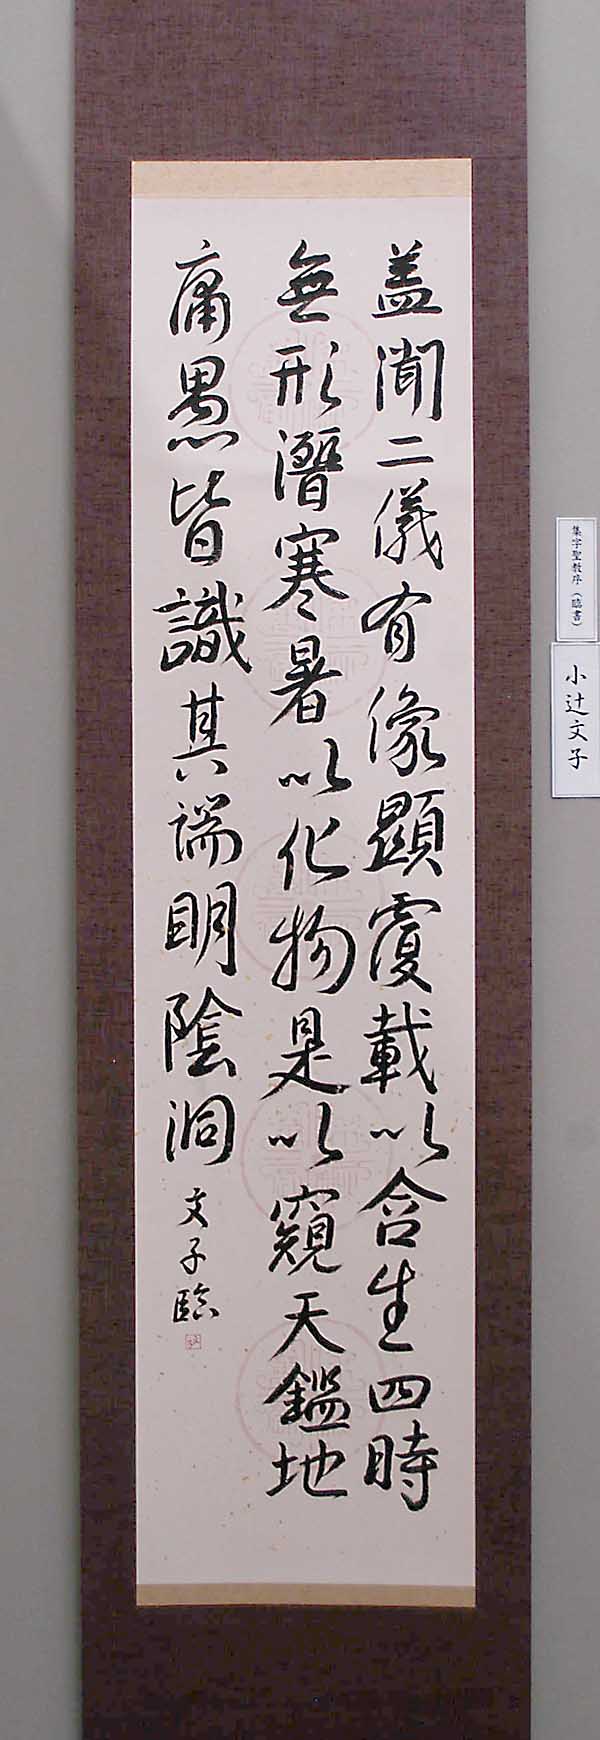 盖聞二儀有像顯覆載以含生四時
無形潛寒暑以化物是以窺天鑑地
庸愚皆識其端明陰洞
文子臨
集字聖教序（臨書）
小辻文子